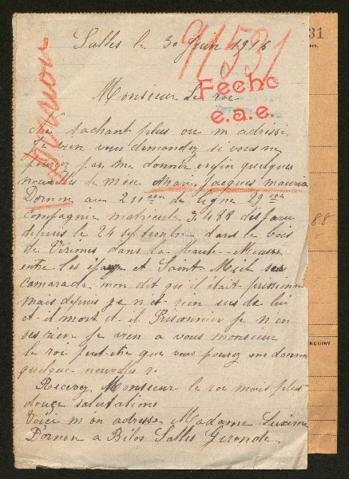 Salles le 30 Juin 1915
91531
31
Fecho
e.a.e.
Monsieur Le roi
Ne sachant plus ou m adresse
Je vien vous demandez si vous ne
pouvez pas me donner enfin quelques
nouvelles de mien Jacques maurice
Dornon au 211 de ligne 29
Compagne matricule 3488 disparu
depuis le 24 septembre dans le bois
de dans la Haute Meuse
entre les et Saint
camarade mon dit qu il était prisonnier
mais depuis je n et rien sus de lui
et il mort et il Prisonnier Je n en
ses rien Je vien a vous monsieur
le roi peut être que vous pouvez me donner
quelque nouvelles
88
Recevez Monsieur le roi mais plus
douce salutations
Voici mon adresse Madame
Dornon a Bilos Salles Gironde